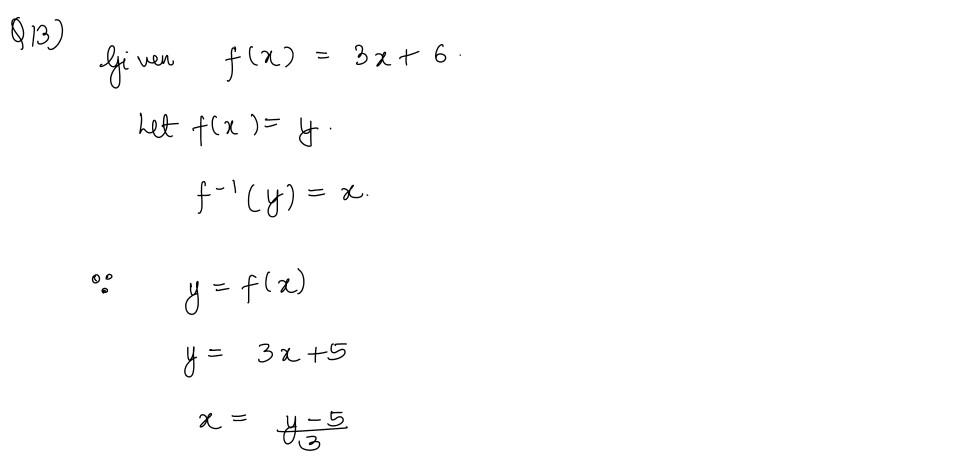 Q13)
Given f(x) = 3x + 6.
Let f(x) = y.
f⁻¹(y) = x.
∵ y = f(x)
y = 3x + 5
x = (y - 5)/3